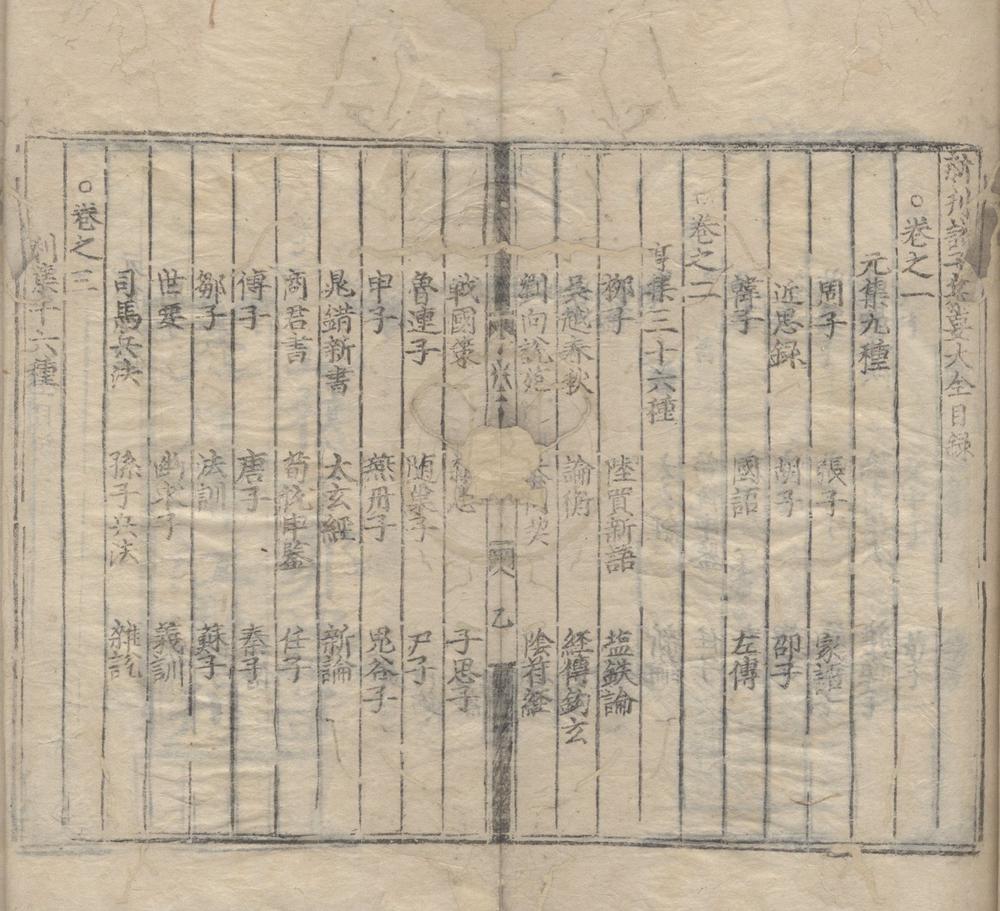 新刊諸子纂要大全目録
○卷之一
元集九種
周子 張子 家語
近思録 胡子 邵子
韓子 國語 左傳
○卷之二
亨集三十六種
柳子 陸賈新語 塩鉄論
吳越春秋 論衡 經傳鈎玄
劉向說苑 參同契 陰符經
乙
戰國策 子思子
魯連子 随巢子 尹子
申子 燕丹子 鬼谷子
晁錯新書 太玄經 新論
商君書 荀悅申鑒 任子
傅子 唐子 秦子
鄒子 法訓 蘇子
世要 幽求子 義訓
司馬兵法 孫子兵法 雜記
○卷之三
利集十六種